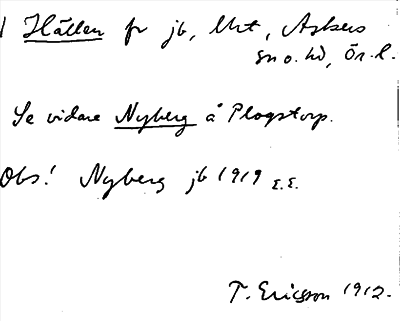 Hällen fr jb, lht, Askers
sn o. hd, Ör. l.
Se vidare Nyberg å Plogstorp.
Obs! Nyberg jb 1919 E.E.
T. Ericsson 1912.